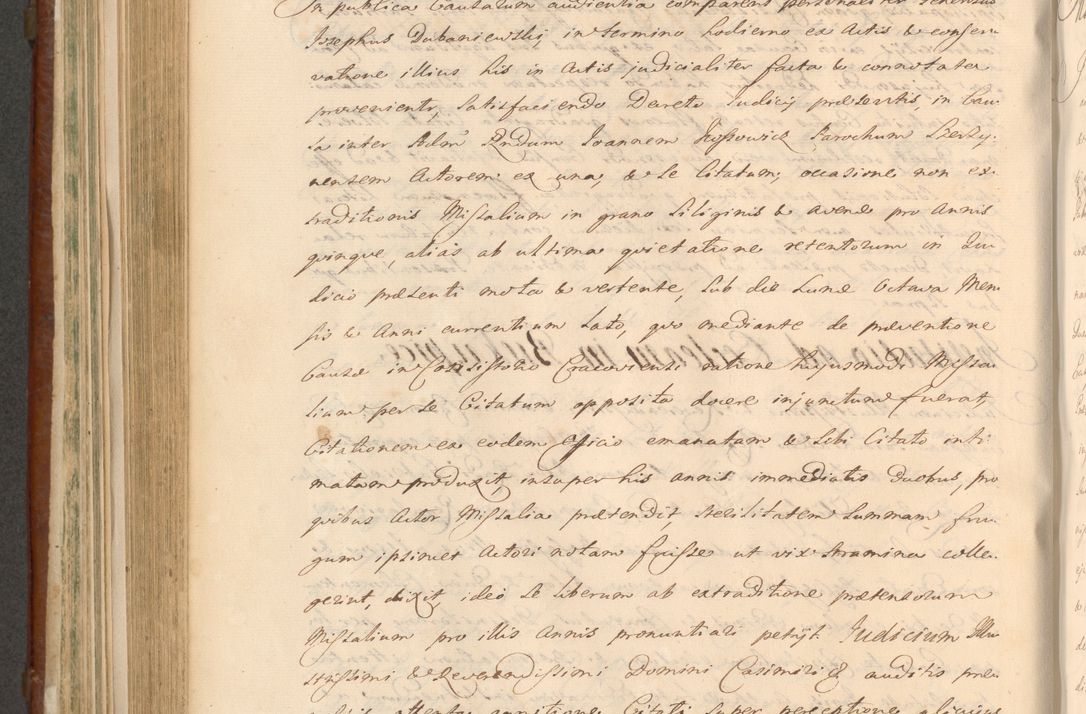 In publica Causarum audientia comparens personaliter Generosus
Josephus Dubaniewskj, in termino hodierno ex Actis & conser-
vatione illius his in Actis judicialiter facta & connotata
proveniente, satisfaciendo Decreto Judicij præsentis, in Cau-
sa inter Adm Rndum Joannem Kossowicz Parochum Szerzy-
nensem Actorem ex una, & se Citatum, occasione non ex-
traditionis Missalium in grano Siliginis & avenæ pro Annis
quinque, alias ab ultima quietatione retentorum in Ju-
dicio præsenti mota & vertente, sub die Lunæ Octava Men-
sis & Anni currentium Lato, quo mediante de præventione
Causæ in Consistorio Cracoviensi ratione hujusmodi Missa-
lium per se Citatum opposita docere injunctum fuerat,
Citationem ex eodem Officio emanatam & sibi Citato inti-
matam produxit, insuper his annis immediatis Duobus, pro
quibus Actor Missalia prætendit, sterilitatem summam fru-
gum ipsimet Actori notam fuisse ut vix stramina colle-
gerint, dixit, ideo se liberum ab extraditione prætensorum
Missalium pro illis Annis pronuntiari petijt. Judicium Illu-
strissimi & Reverendissimi Domini Casimiri & auditis præ-
missis attenta Citati super perceptione alicujus